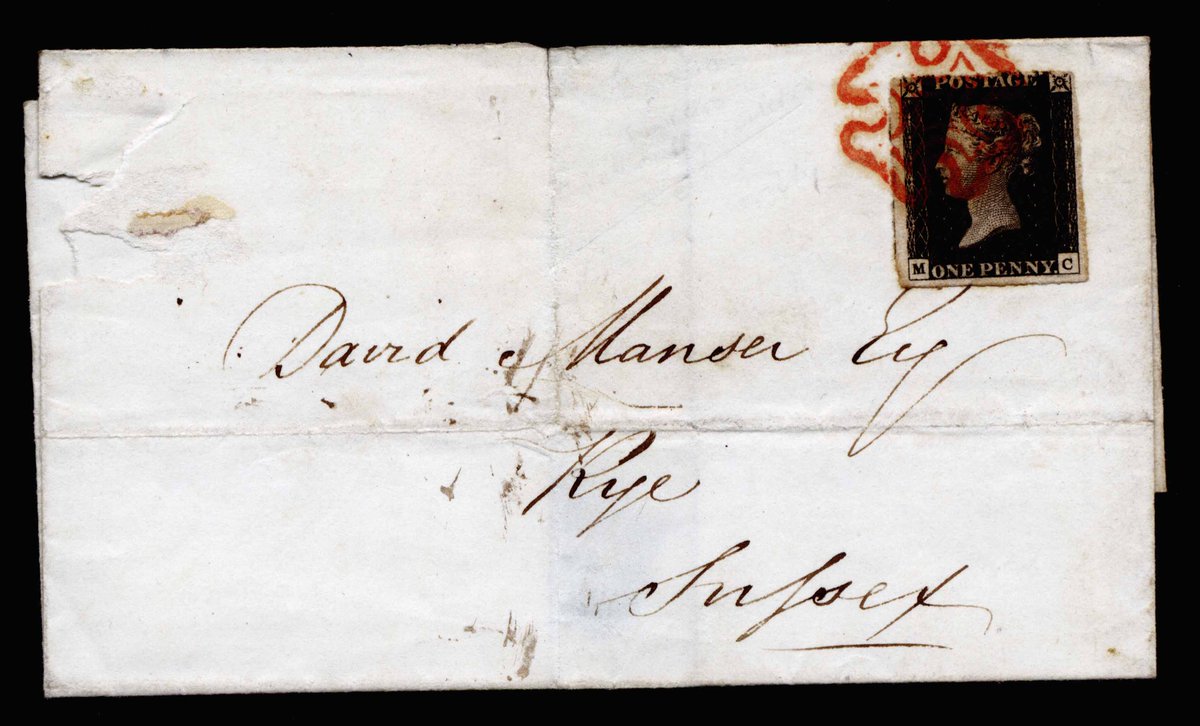 POSTAGE
M ONE PENNY. C
David Manser Esq
Rye
Sussex